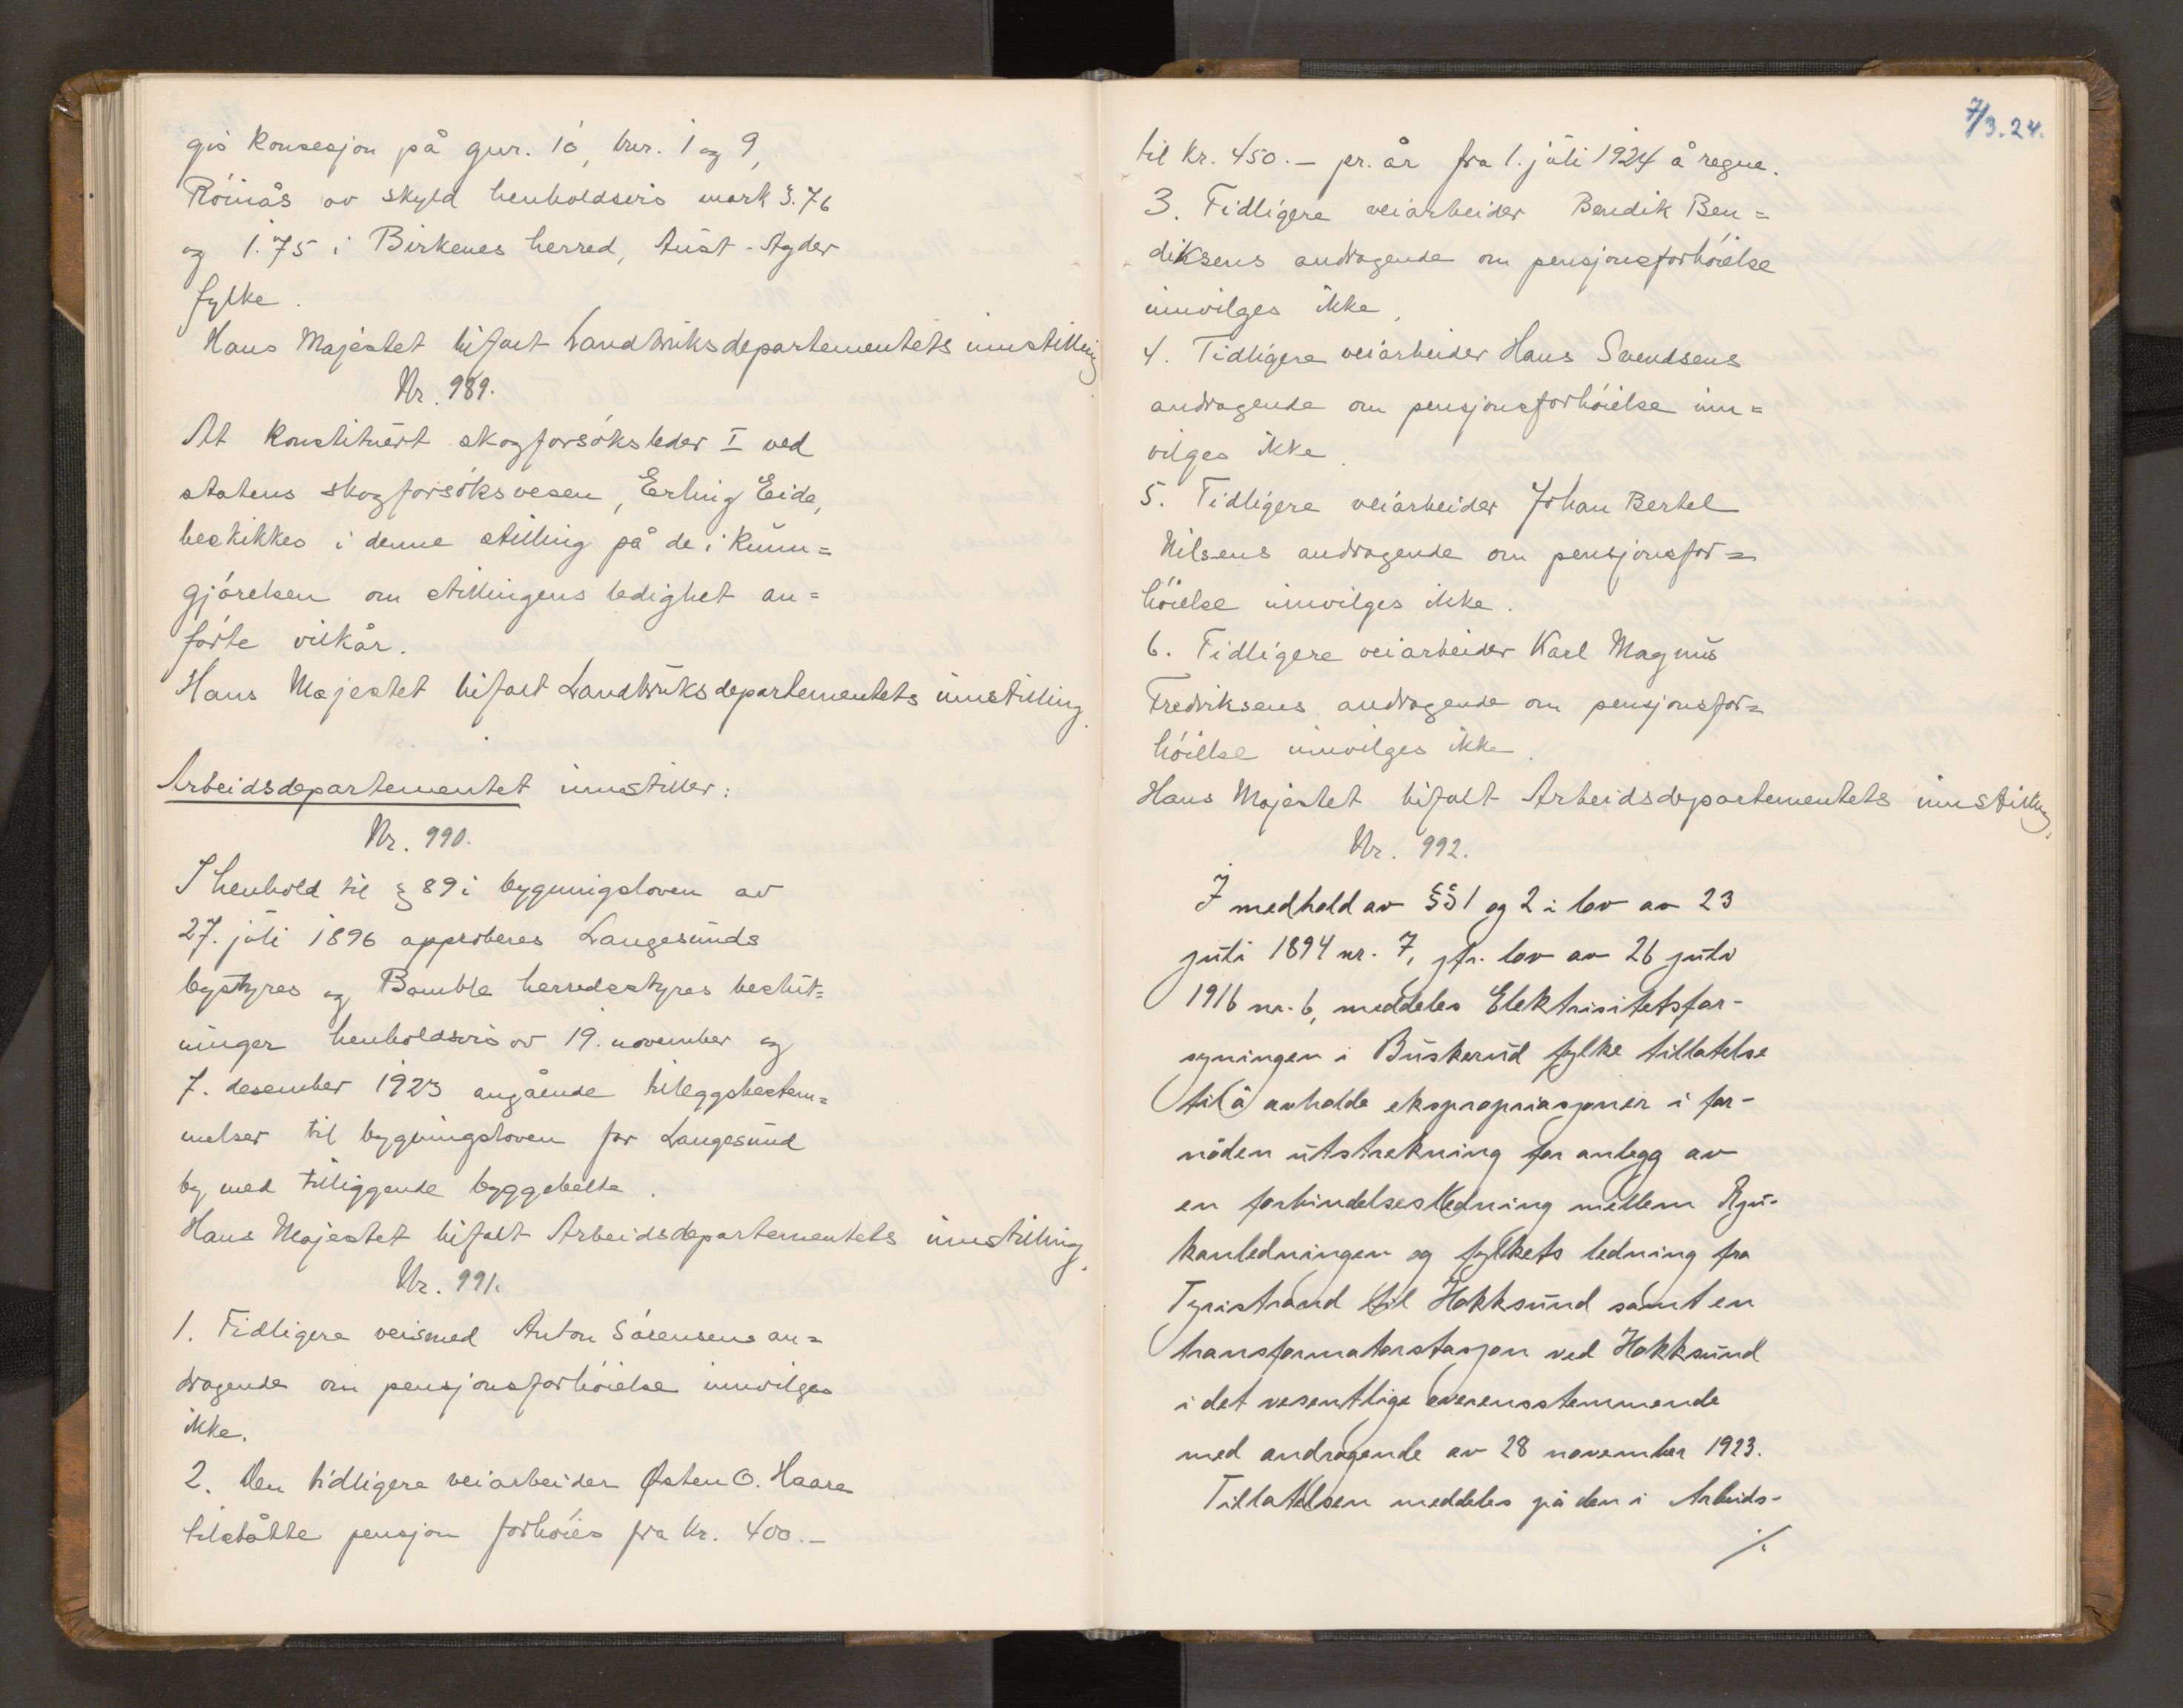 gis konsesjon på gnr. 10, bnr. 1 og 9,
Röinås av skyld henholdsvis mark 3.76
og 1.75 i Birkenes herred, Aust-Agder
fylke.
Hans Majestet bifalt Landbruksdepartementets innstilling
Nr. 989.
At konstituert skogforsöksleder I ved
statens skogforsöksvesen, Erling Eide,
beskikkes i denne stilling på de i kunn=
gjörelsen om stillingens ledighet an=
förte vilkår.
Hans Majestet bifalt Landbruksdepartementets innstilling.
Arbeidsdepartementet innstiller:
Nr. 990.
I henhold til § 89 i bygningsloven av
27. juli 1896 approberes Langesunds
bystyres og Bamble herredsstyres beslut=
ninger henholdsvis av 19. november og
7. desember 1923 angående tileggsbestem=
melser til bygningsloven for Langesund
by med tilliggende byggebelte.
Hans Majestet bifalt Arbeidsdepartementets innstilling.
Nr. 991.
1. Tidligere veismed Anton Sörensens an=
dragende om pensjonsforhöielse innvilges
ikke.
2. Den tidligere veiarbeider Østen O. Haare
tilståtte pensjon forhöies fra kr. 400.-
7/3.24.
til kr. 450.- pr. år fra 1. juli 1924 å regne.
3. Tidligere veiarbeider Bendik Ben=
diksens andragende om pensjonsforhöielse
innvilges ikke.
4. Tidligere veiarbeider Hans Svendsens
andragende om pensjonsforhöielse inn=
vilges ikke.
5. Tidligere veiarbeider Johan Bertel
Nilsens andragende om pensjonsfor=
höielse innvilges ikke.
6. Tidligere veiarbeider Karl Magnus
Fredriksens andragende om pensjonsfor=
höielse innvilges ikke.
Hans Majestet bifalt Arbeidsdepartementets innstilling.
Nr. 992.
I medhold av §§ 1 og 2 i lov av 23
juli 1894 nr. 7, jfr. lov av 26 juli
1916 nr. 6, meddeles Elektrisitetsfor-
syningen i Buskerud fylke tillatelse
til å avholde ekspropriasjoner i for-
nöden utstrekning for anlegg av
en forbindelsesledning mellem Rju-
kanledningen og fylkets ledning fra
Tyristrand til Hokksund samt en
transformatorstasjon ved Hokksund
i det vesentlige overensstemmende
med andragende av 28 november 1923.
Tillatelsen meddeles på den i Arbeids-
./.